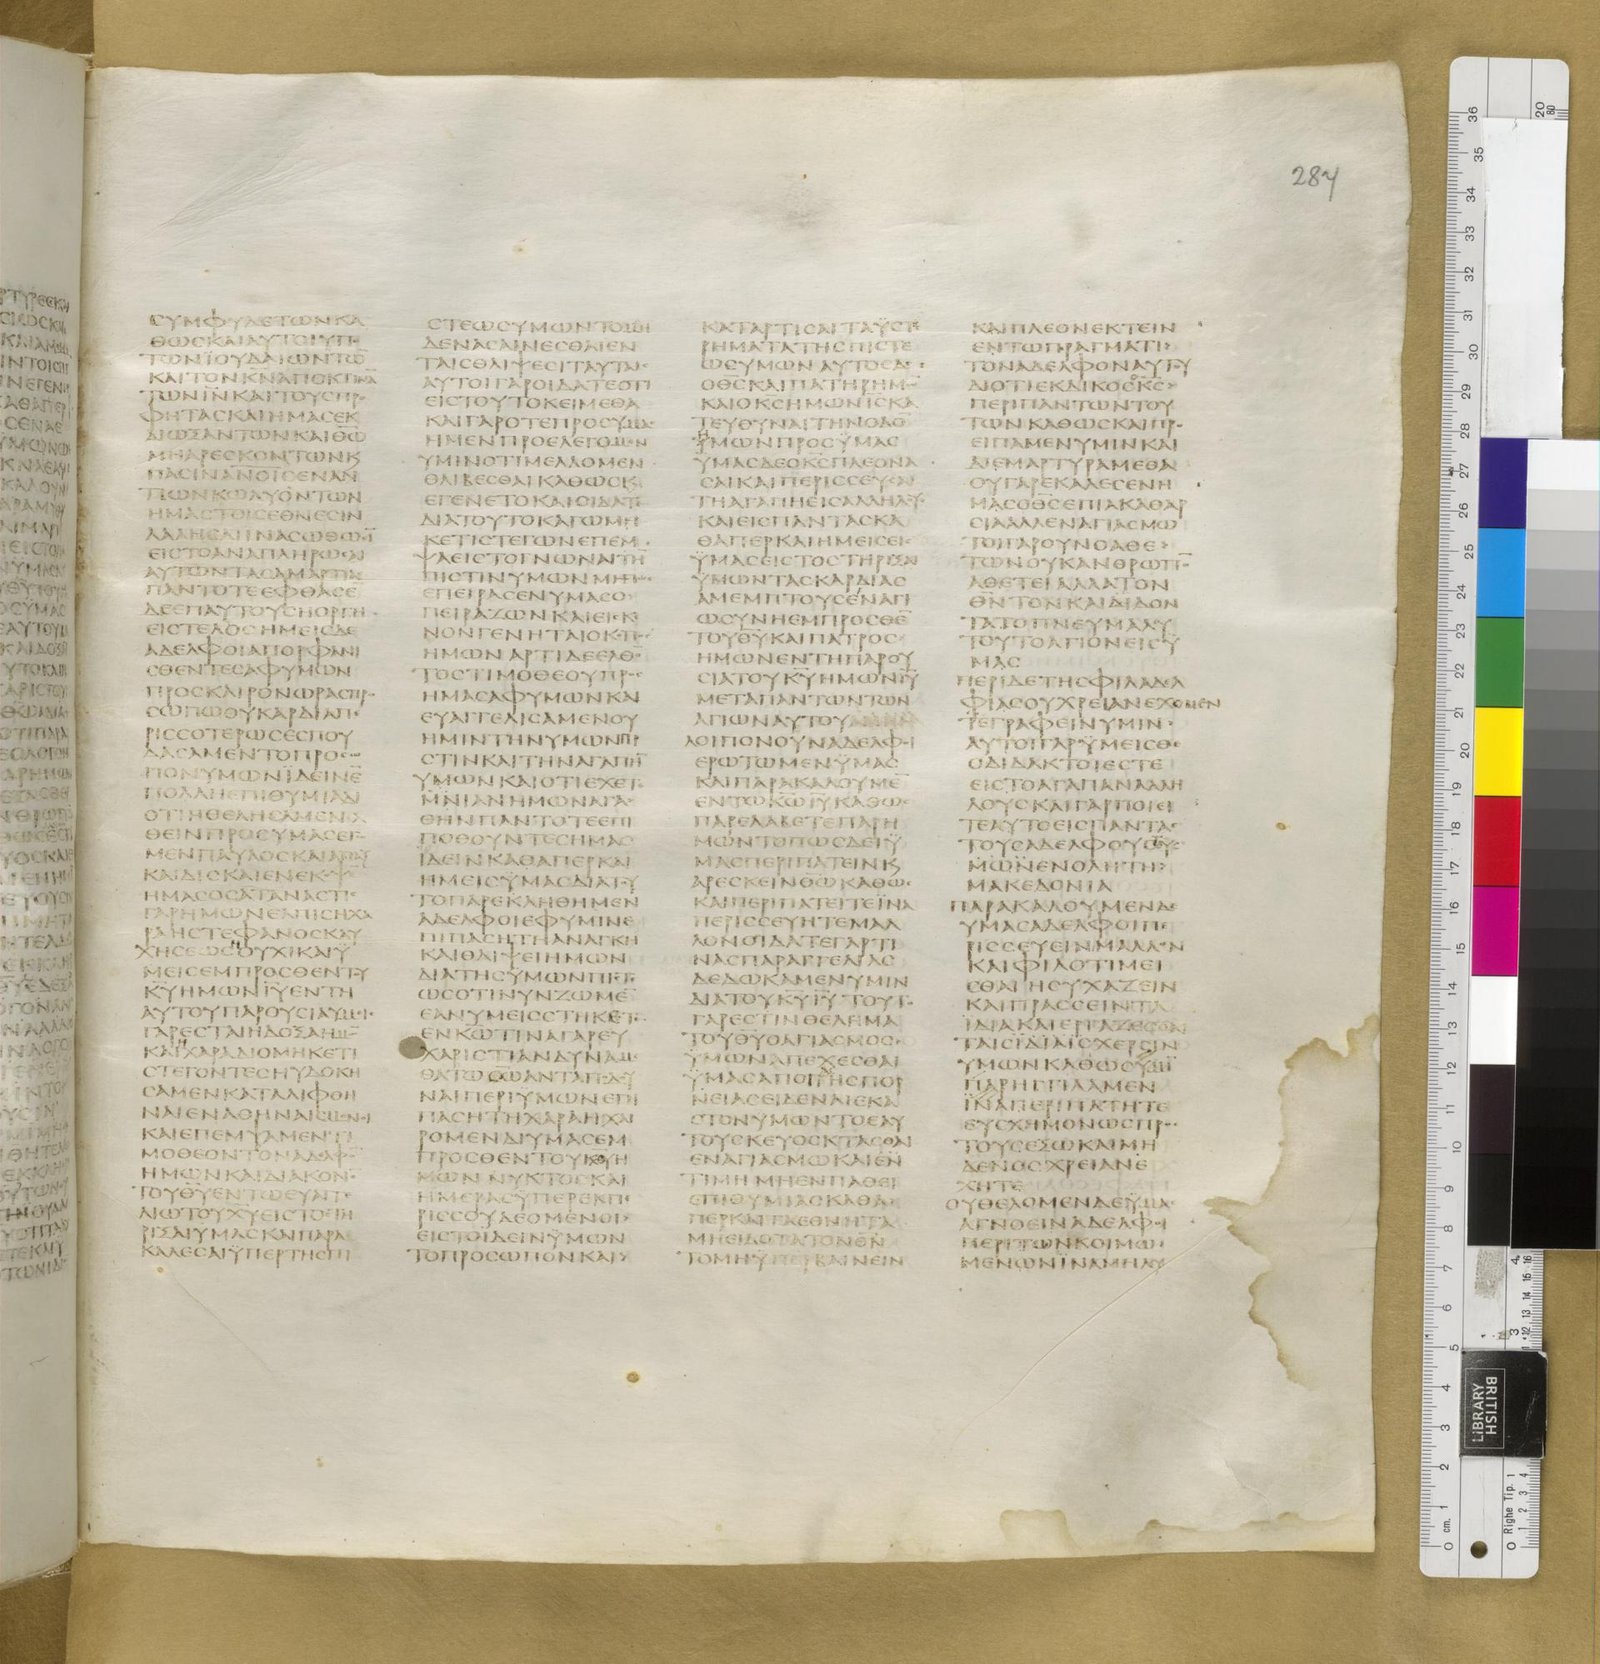 284
ϹΥΜΦΥΛΕΤΩΝΚΑ
ΘΩϹΚΑΙΑΥΤΟΙΥΠΟ
ΤΩΝΪΟΥΔΑΙΩΝΤΩ̅
ΚΑΙΤΟΝΚ̅Ν̅ΑΠΟΚΤΙΝΑ̅
ΤΩΝΙ̅Ν̅ΚΑΙΤΟΥϹΠΡΟ
ΦΗΤΑϹΚΑΙΗΜΑϹΕΚ
ΔΙΩΞΑΝΤΩΝΚΑΙΘ̅Ω̅
ΜΗΑΡΕϹΚΟΝΤΩΝϏ
ΠΑϹΙΝΑΝΟΙϹΕΝΑΝ
ΤΙΩΝΚΩΛΥΟΝΤΩΝ
ΗΜΑϹΤΟΙϹΕΘΝΕϹΙΝ
ΛΑΛΗϹΑΙΪΝΑϹΩΘΩϹΪ
ΕΙϹΤΟΑΝΑΠΛΗΡΩϹΑΙ
ΑΥΤΩΝΤΑϹΑΜΑΡΤΙΑϹ
ΠΑΝΤΟΤΕΕΦΘΑϹΕ
ΔΕΕΠΑΥΤΟΥϹΗΟΡΓΗ
ΕΙϹΤΕΛΟϹΗΜΕΙϹΔΕ
ΑΔΕΛΦΟΙΑΠΟΡΦΑΝΙ
ϹΘΕΝΤΕϹΑΦΥΜΩΝ
ΠΡΟϹΚΑΙΡΟΝΩΡΑϹΠΡΟ
ϹΩΠΩΟΥΚΑΡΔΙΑΠΕ
ΡΙϹϹΟΤΕΡΩϹΕϹΠΟΥ
ΔΑϹΑΜΕΝΤΟΠΡΟϹΩ
ΠΟΝΥΜΩΝΪΔΕΙΝΕ̅
ΠΟΛΛΗΕΠΙΘΥΜΙΑΔΙ
ΟΤΙΗΘΕΛΗϹΑΜΕΝΕΛ
ΘΕΙΝΠΡΟϹΥΜΑϹΕΓΩ
ΜΕΝΠΑΥΛΟϹΚΑΙΑΠΑΞ
ΚΑΙΔΙϹΚΑΙΕΝΕΚΟΨΕ̅
ΗΜΑϹΟϹΑΤΑΝΑϹΤΙϹ
ΓΑΡΗΜΩΝΕΛΠΙϹΗΧΑ
ΡΑΗϹΤΕΦΑΝΟϹΚΑΥ
ΧΗϹΕΩϹΗΟΥΧΙΚΑΙΫ
ΜΕΙϹΕΜΠΡΟϹΘΕΝΤΟΥ
Κ̅Υ̅ΗΜΩΝΙ̅Υ̅ΕΝΤΗ
ΑΥΤΟΥΠΑΡΟΥϹΙΑΥΜΕΙϹ
ΓΑΡΕϹΤΑΙΗΔΟΞΑΗΜΩ̅
ΚΑΙΗΧΑΡΑΔΙΟΜΗΚΕΤΙ
ϹΤΕΓΟΝΤΕϹΗΥΔΟΚΗ
ϹΑΜΕΝΚΑΤΑΛΙΦΘΗ
ΝΑΙΕΝΑΘΗΝΑΙϹΜΟΝΟΙ
ΚΑΙΕΠΕΜΨΑΜΕΝΤΙ
ΜΟΘΕΟΝΤΟΝΑΔΕΛΦΟ̅
ΗΜΩΝΚΑΙΔΙΑΚΟΝΟΝ
ΤΟΥΘ̅Υ̅ΕΝΤΩΕΥΑΓΓΕ
ΛΙΩΤΟΥΧ̅Υ̅ΕΙϹΤΟϹΤΗ
ΡΙΞΑΙΥΜΑϹΚΑΙΠΑΡΑ
ΚΑΛΕϹΑΙΫΠΕΡΤΗϹΠΙ
ϹΤΕΩϹΥΜΩΝΤΟΜΗ
ΔΕΝΑϹΑΙΝΕϹΘΑΙΕΝ
ΤΑΙϹΘΛΙΨΕϹΙΤΑΥΤΑΙϹ
ΑΥΤΟΙΓΑΡΟΙΔΑΤΕΟΤΙ
ΕΙϹΤΟΥΤΟΚΕΙΜΕΘΑ
ΚΑΙΓΑΡΟΤΕΠΡΟϹΥΜΑϹ
ΗΜΕΝΠΡΟΕΛΕΓΟΜΕΝ
ΥΜΙΝΟΤΙΜΕΛΛΟΜΕΝ
ΘΛΙΒΕϹΘΑΙΚΑΘΩϹΚΑΙ
ΕΓΕΝΕΤΟΚΑΙΟΙΔΑΤΕ
ΔΙΑΤΟΥΤΟΚΑΓΩΜΗ
ΚΕΤΙϹΤΕΓΩΝΕΠΕΜ
ΨΑΕΙϹΤΟΓΝΩΝΑΙΤΗ̅
ΠΙϹΤΙΝΥΜΩΝΜΗΠΩϹ
ΕΠΕΙΡΑϹΕΝΥΜΑϹΟ
ΠΕΙΡΑΖΩΝΚΑΙΕΙϹΚΕ
ΝΟΝΓΕΝΗΤΑΙΟΚΟΠΟϹ
ΗΜΩΝΑΡΤΙΔΕΕΛΘΟ̅
ΤΟϹΤΙΜΟΘΕΟΥΠΡΟϹ
ΗΜΑϹΑΦΥΜΩΝΚΑΙ
ΕΥΑΓΓΕΛΙϹΑΜΕΝΟΥ
ΗΜΙΝΤΗΝΥΜΩΝΠΙ
ϹΤΙΝΚΑΙΤΗΝΑΓΑΠΗ̅
ΥΜΩΝΚΑΙΟΤΙΕΧΕΤΕ
ΜΝΙΑΝΗΜΩΝΑΓΑ
ΘΗΝΠΑΝΤΟΤΕΕΠΙ
ΠΟΘΟΥΝΤΕϹΗΜΑϹ
ΪΔΕΙΝΚΑΘΑΠΕΡΚΑΙ
ΗΜΕΙϹΫΜΑϹΔΙΑΤΟΥ
ΤΟΠΑΡΕΚΛΗΘΗΜΕΝ
ΑΔΕΛΦΟΙΕΦΥΜΙΝΕ
ΠΙΠΑϹΗΤΗΑΝΑΓΚΗ
ΚΑΙΘΛΙΨΕΙΗΜΩΝ
ΔΙΑΤΗϹΥΜΩΝΠΙϹΤΕ
ΩϹΟΤΙΝΥΝΖΩΜΕ̅
ΕΑΝΥΜΕΙϹϹΤΗΚΕΤΕ
ΕΝΚ̅Ω̅ΤΙΝΑΓΑΡΕΥ
ΧΑΡΙϹΤΙΑΝΔΥΝΑΜΕ
ΘΑΤΩΘ̅Ω̅ΑΝΤΑΠΟΔΟΥ
ΝΑΙΠΕΡΙΥΜΩΝΕΠΙ
ΠΑϹΗΤΗΧΑΡΑΗΧΑΙ
ΡΟΜΕΝΔΙΥΜΑϹΕΜ
ΠΡΟϹΘΕΝΤΟΥΚ̅Υ̅Η
ΜΩΝΝΥΚΤΟϹΚΑΙ
ΗΜΕΡΑϹΫΠΕΡΕΚΠΕ
ΡΙϹϹΟΥΔΕΟΜΕΝΟΙ
ΕΙϹΤΟΙΔΕΙΝΫΜΩΝ
ΤΟΠΡΟϹΩΠΟΝΚΑΙ
ΚΑΤΑΡΤΙϹΑΙΤΑΫϹΤΕ
ΡΗΜΑΤΑΤΗϹΠΙϹΤΕ
ΩϹΥΜΩΝΑΥΤΟϹΔΕΟ
Ο̅Θ̅Ϲ̅ΚΑΙΠΑΤΗΡΗΜΩ̅
ΚΑΙΟΚ̅Ϲ̅ΗΜΩΝΙ̅Ϲ̅ΚΑ
ΤΕΥΘΥΝΑΙΤΗΝΟΔΟ̅
ΗΜΩΝΠΡΟϹΫΜΑϹ
ΫΜΑϹΔΕΟΚ̅Ϲ̅ΠΛΕΟΝΑ
ϹΑΙΚΑΙΠΕΡΙϹϹΕΥϹΑΙ
ΤΗΑΓΑΠΗΕΙϹΑΛΛΗΛΟΥϹ
ΚΑΙΕΙϹΠΑΝΤΑϹΚΑ
ΘΑΠΕΡΚΑΙΗΜΕΙϹΕΙϹ
ΫΜΑϹΕΙϹΤΟϹΤΗΡΙΞΑΙ
ΫΜΩΝΤΑϹΚΑΡΔΙΑϹ
ΑΜΕΜΠΤΟΥϹΕΝΑΓΙ
ΩϹΥΝΗΕΜΠΡΟϹΘΕ̅
ΤΟΥΘ̅Υ̅ΚΑΙΠΑΤΡΟϹ
ΗΜΩΝΕΝΤΗΠΑΡΟΥ
ϹΙΑΤΟΥΚ̅Υ̅ΗΜΩΝΙ̅Υ̅
ΜΕΤΑΠΑΝΤΩΝΤΩΝ
ΑΓΙΩΝΑΥΤΟΥΑΜΗΝ
ΛΟΙΠΟΝΟΥΝΑΔΕΛΦΟΙ
ΕΡΩΤΩΜΕΝΥΜΑϹ
ΚΑΙΠΑΡΑΚΑΛΟΥΜΕ̅
ΕΝΤΩΚ̅Ω̅Ι̅Υ̅ΚΑΘΩϹ
ΠΑΡΕΛΑΒΕΤΕΠΑΡΗ
ΜΩΝΤΟΠΩϹΔΕΙΫ
ΜΑϹΠΕΡΙΠΑΤΕΙΝϏ
ΑΡΕϹΚΕΙΝΘ̅Ω̅ΚΑΘΩϹ
ΚΑΙΠΕΡΙΠΑΤΕΙΤΕΪΝΑ
ΠΕΡΙϹϹΕΥΗΤΕΜΑΛ
ΛΟΝΟΙΔΑΤΕΓΑΡΤΙ
ΝΑϹΠΑΡΑΓΓΕΛΙΑϹ
ΔΕΔΩΚΑΜΕΝΥΜΙΝ
ΔΙΑΤΟΥΚ̅Υ̅Ι̅Υ̅ΤΟΥΤΟ
ΓΑΡΕϹΤΙΝΘΕΛΗΜΑ
ΤΟΥΘ̅Υ̅ΟΑΓΙΑϹΜΟϹ
ΫΜΩΝΑΠΕΧΕϹΘΑΙ
ΫΜΑϹΑΠΟΤΗϹΠΟΡ
ΝΕΙΑϹΕΙΔΕΝΑΙΕΚΑ
ϹΤΟΝΥΜΩΝΤΟΕΑΥ
ΤΟΥϹΚΕΥΟϹΚΤΑϹΘΑΙ
ΕΝΑΓΙΑϹΜΩΚΑΙΕΝ
ΤΙΜΗΜΗΕΝΠΑΘΕΙ
ΕΠΙΘΥΜΙΑϹΚΑΘΑ
ΠΕΡΚΑΙΤΑΕΘΝΗΤΑ
ΜΗΕΙΔΟΤΑΤΟΝΘ̅Ν̅
ΤΟΜΗΫΠΕΡΒΑΙΝΕΙΝ
ΚΑΙΠΛΕΟΝΕΚΤΕΙΝ
ΕΝΤΩΠΡΑΓΜΑΤΙ
ΤΟΝΑΔΕΛΦΟΝΑΥΤΟΥ
ΔΙΟΤΙΕΚΔΙΚΟϹΚ̅Ϲ̅
ΠΕΡΙΠΑΝΤΩΝΤΟΥ
ΤΩΝΚΑΘΩϹΚΑΙΠΡΟ
ΕΙΠΑΜΕΝΥΜΙΝΚΑΙ
ΔΙΕΜΑΡΤΥΡΑΜΕΘΑ
ΟΥΓΑΡΕΚΑΛΕϹΕΝΗ
ΜΑϹΟΘ̅Ϲ̅ΕΠΙΑΚΑΘΑΡ
ϹΙΑΑΛΛΕΝΑΓΙΑϹΜΩ
ΤΟΙΓΑΡΟΥΝΟΑΘΕ
ΤΩΝΟΥΚΑΝΘΡΩΠΟ̅
ΑΘΕΤΕΙΑΛΛΑΤΟΝ
Θ̅Ν̅ΤΟΝΚΑΙΔΙΔΟΝ
ΤΑΤΟΠΝΕΥΜΑΑΥ
ΤΟΥΤΟΑΓΙΟΝΕΙϹΫ
ΜΑϹ
ΠΕΡΙΔΕΤΗϹΦΙΛΑΔΕΛ
ΦΙΑϹΟΥΧΡΕΙΑΝΕΧΟΜΕΝ
ΓΡΑΦΕΙΝΥΜΙΝ
ΑΥΤΟΙΓΑΡΫΜΕΙϹΘΕ
ΟΔΙΔΑΚΤΟΙΕϹΤΕ
ΕΙϹΤΟΑΓΑΠΑΝΑΛΛΗ
ΛΟΥϹΚΑΙΓΑΡΠΟΙΕΙ
ΤΕΑΥΤΟΕΙϹΠΑΝΤΑϹ
ΤΟΥϹΑΔΕΛΦΟΥϹΫ
ΜΩΝΕΝΟΛΗΤΗ
ΜΑΚΕΔΟΝΙΑ
ΠΑΡΑΚΑΛΟΥΜΕΝΔΕ
ΥΜΑϹΑΔΕΛΦΟΙΠΕ
ΡΙϹϹΕΥΕΙΝΜΑΛΛΟΝ
ΚΑΙΦΙΛΟΤΙΜΕΙ
ϹΘΑΙΗϹΥΧΑΖΕΙΝ
ΚΑΙΠΡΑϹϹΕΙΝΤΑ
ΪΔΙΑΚΑΙΕΡΓΑΖΕϹΘΑΙ
ΤΑΙϹΙΔΙΑΙϹΧΕΡϹΙΝ
ΥΜΩΝΚΑΘΩϹΥΜΙ̅
ΠΑΡΗΓΓΙΛΑΜΕΝ
ΪΝΑΠΕΡΙΠΑΤΗΤΕ
ΕΥϹΧΗΜΟΝΩϹΠΡΟϹ
ΤΟΥϹΕΞΩΚΑΙΜΗ
ΔΕΝΟϹΧΡΕΙΑΝΕ
ΧΗΤΕ
ΟΥΘΕΛΟΜΕΝΔΕΫΜΑϹ
ΑΓΝΟΕΙΝΑΔΕΛΦΟΙ
ΠΕΡΙΤΩΝΚΟΙΜΩ
ΜΕΝΩΝΪΝΑΜΗΛΥ